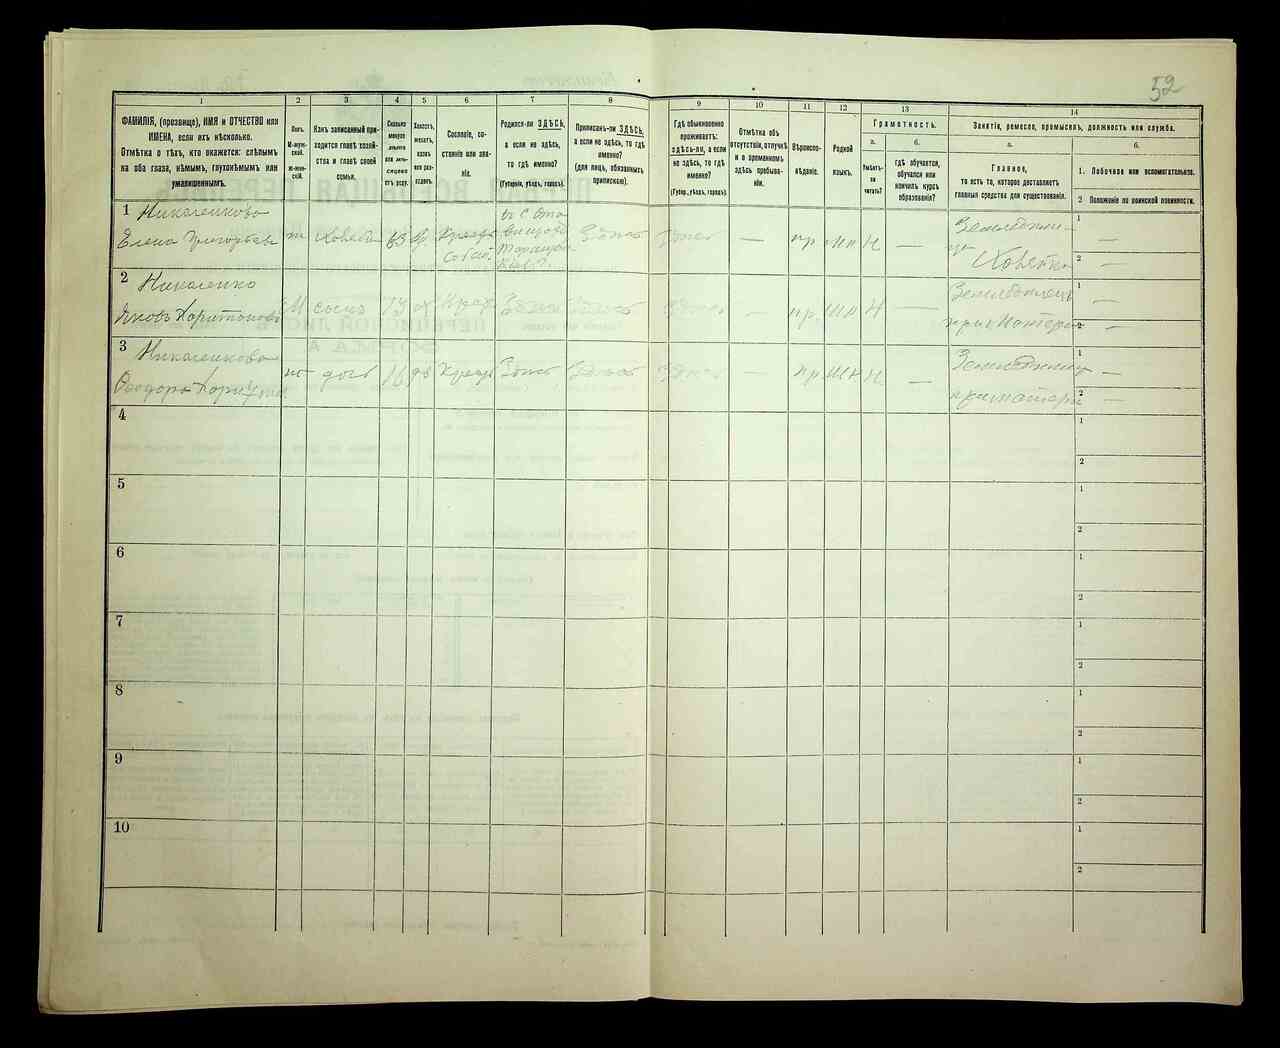 52
1
2
3
4
5
6
7
8
9
10
11
12
13
14
ФАМИЛІЯ, (прозвище), ИМЯ и ОТЧЕСТВО или
ИМЕНА, если ихъ нѣсколько.
Отмѣтка о тѣхъ, кто окажется: слѣпымъ
на оба глаза, нѣмымъ, глухонѣмымъ или
умалишеннымъ.
Полъ.
М-муж-
ской.
Ж-жен-
скій.
Какъ записанный при-
ходится главѣ хозяй-
ства и главѣ своей
семьи.
Сколько
минуло
лѣтъ
или мѣ-
сяцевъ
отъ роду.
Холостъ,
женатъ,
вдовъ
или раз-
веденъ.
Сословіе, со-
стояніе или зва-
ніе.
Родился-ли ЗДѢСЬ,
а если не здѣсь,
то гдѣ именно?
(Губернія, уѣздъ, городъ).
Приписанъ-ли ЗДѢСЬ,
а если не здѣсь, то гдѣ
именно?
(для лицъ, обязанныхъ
припискою).
Гдѣ обыкновенно
проживаетъ:
здѣсь-ли, а если
не здѣсь, то гдѣ
именно?
(Губер., уѣздъ, городъ).
Отмѣтка объ
отсутствіи, отлучкѣ
и о временномъ
здѣсь пребыва-
ніи.
Вѣроиспо-
вѣданіе.
Родной
языкъ.
Грамотность.
а.
б.
Умѣетъ-
ли
читать?
гдѣ обучается,
обучался или
кончилъ курсъ
образованія?
Занятіе, ремесло, промыселъ, должность или служба.
а.
б.
Главное,
то есть то, которое доставляетъ
главныя средства для существованія.
1. Побочное или вспомогательное.
2 Положеніе по воинской повинности.
1 Николенкова
Елена Григорьева ж 63 вд Крест Здѣсь Здѣсь — пр мл Н —
1 —
2 —
2 Николенко
Яковъ Харитоновъ М сынъ 19 хол Крест Здѣсь Здѣсь Здѣсь — пр мл Н —
1 —
2 —
3 Николенкова
Харитонова ж дочь 16 дѣ Крест Здѣсь Здѣсь Здѣсь — пр мл Н —
при матери
1 —
2 —
4
1
2
5
1
2
6
1
2
7
1
2
8
1
2
9
1
2
10
1
2